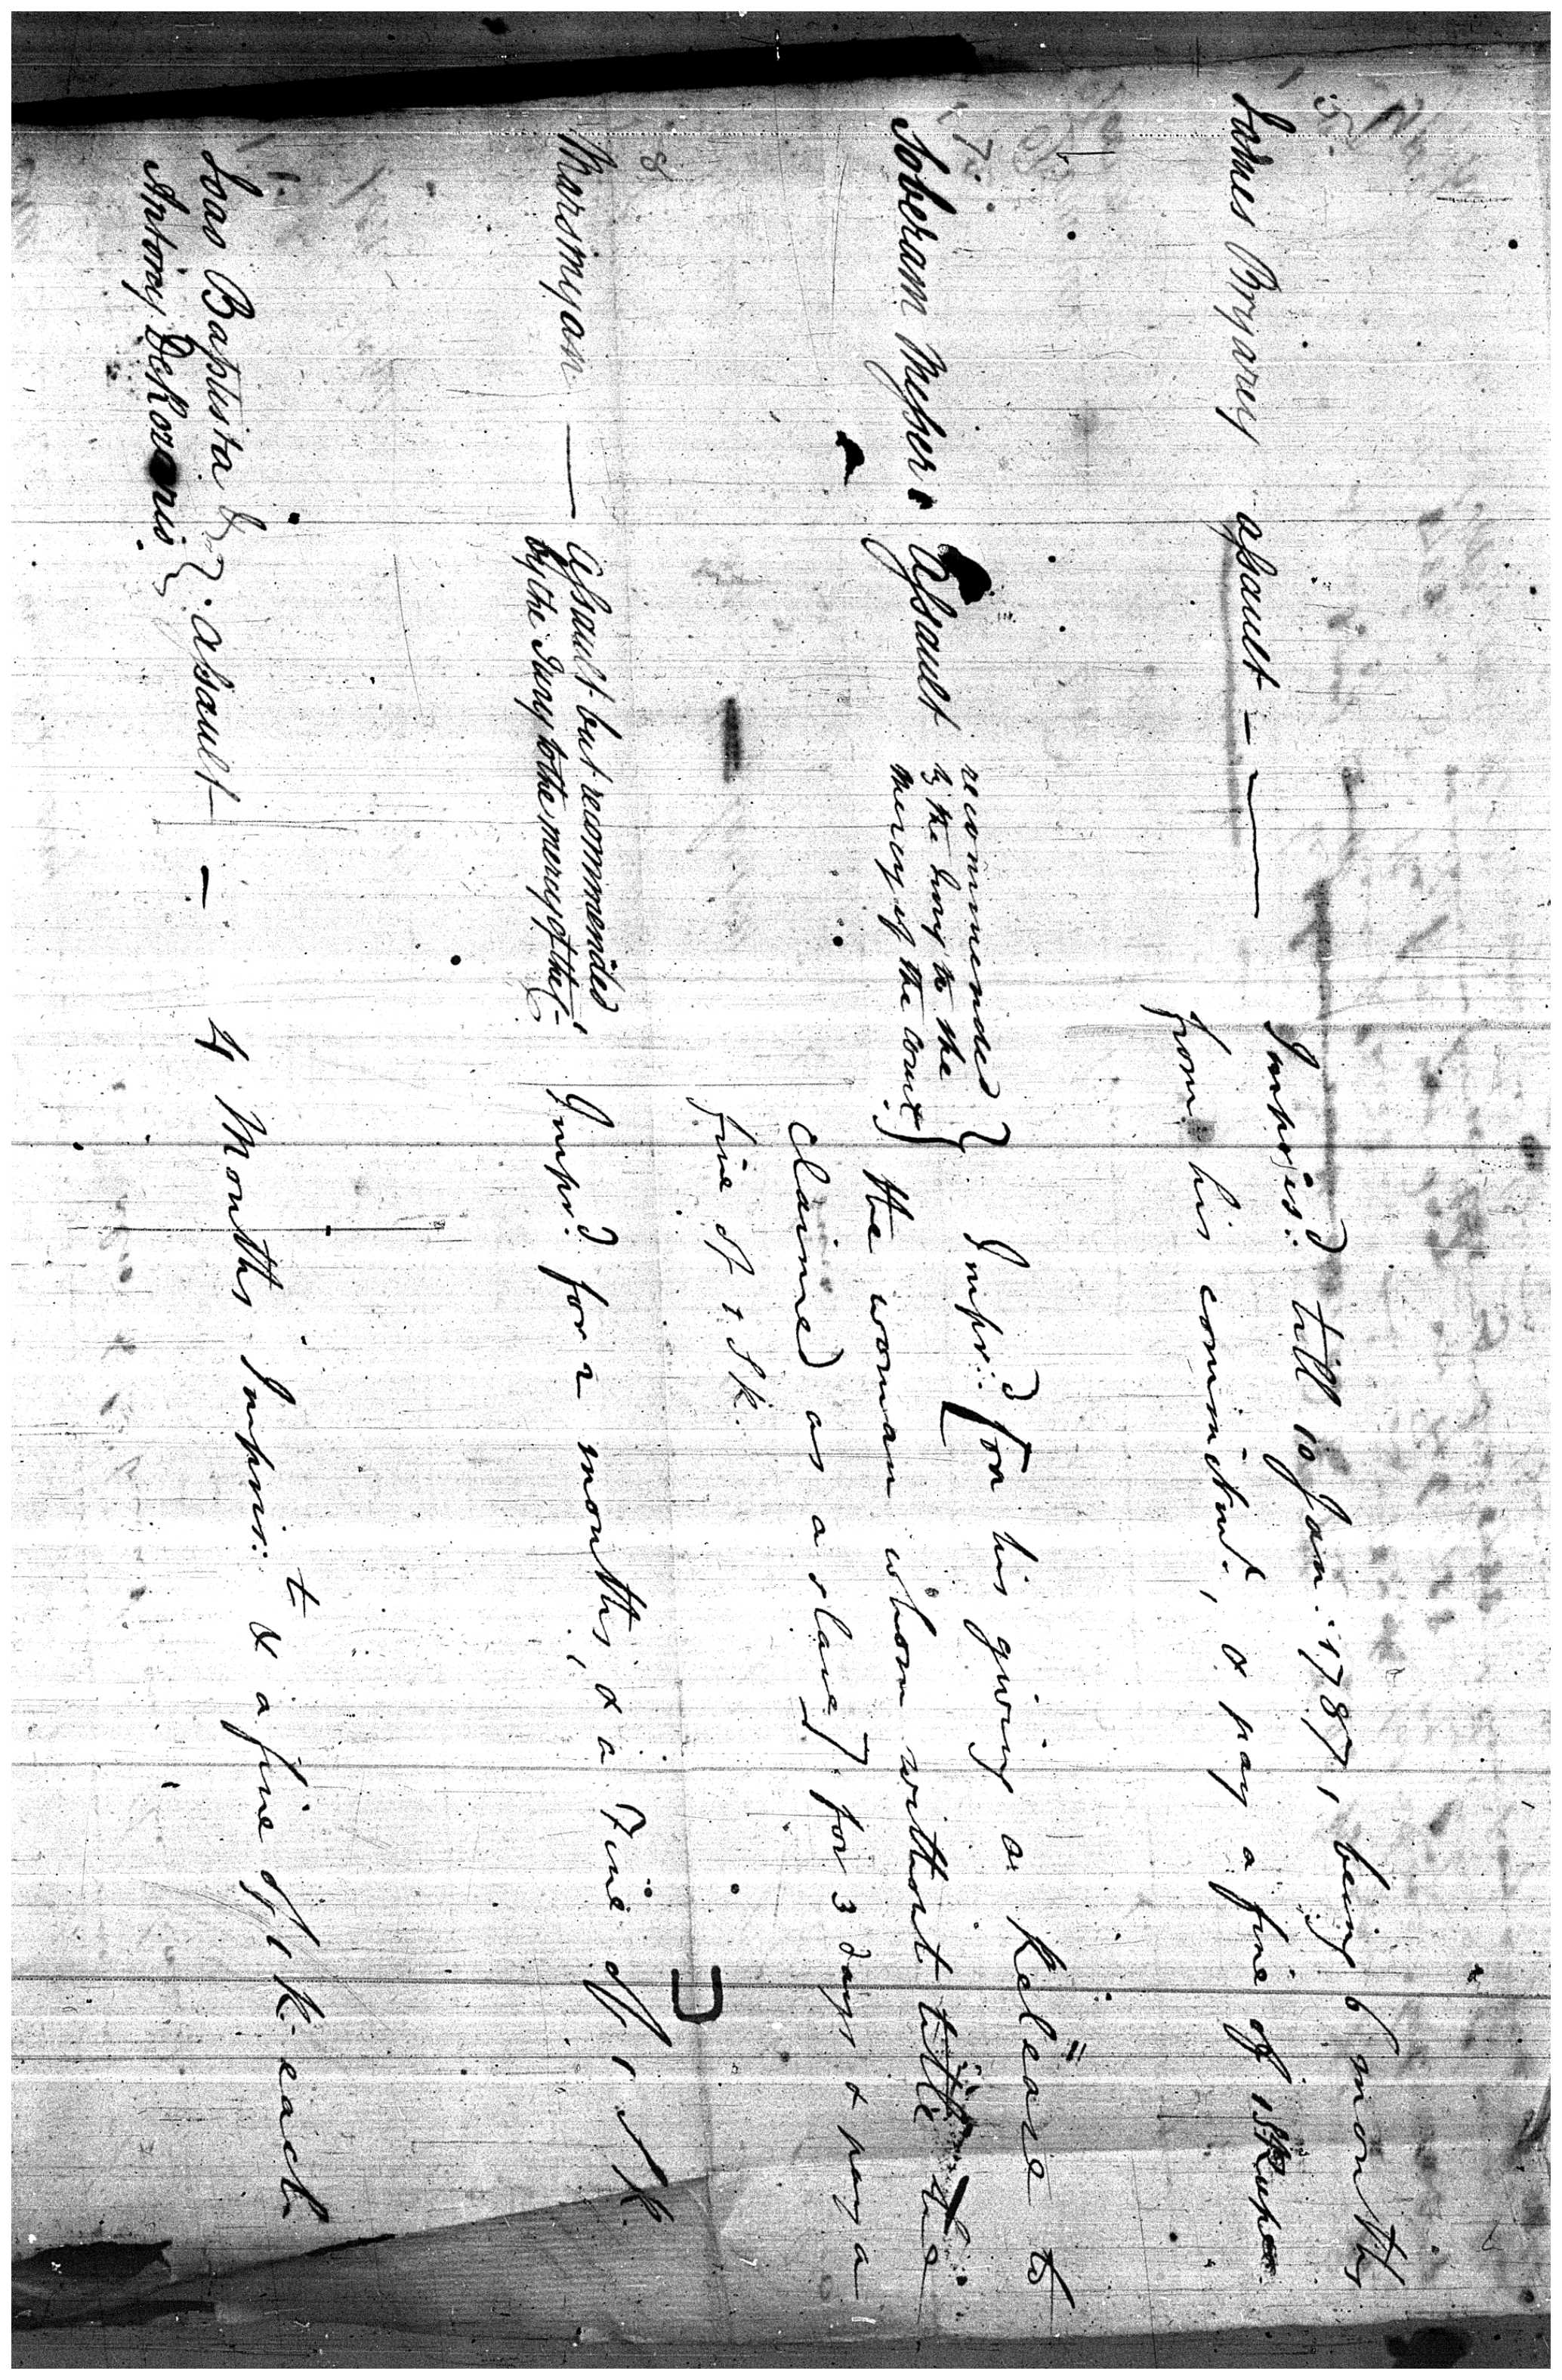 James Bryarey assault —
Impris:d till 10 Jan. 1787, being 6 months
from his commitmt., & pay a fine of 1 S Rupee
7.
Soberam Messer. Assault
recommended
by the Jury to the
mercy of the Court
Impr:d [on his giving a Release to
the woman whom without title he
claimed as a slave] for 3 days & pay a
fine of 1 S R.
8
Marsmyan — Assault but recommended
by the Jury to the mercy of the C-
Impr:d for 2 months, & a Fine of 1 S R.
Joao Baptista &
Antony DeRozario
assault —
4 Months Impris:t & a fine of 1 R. each